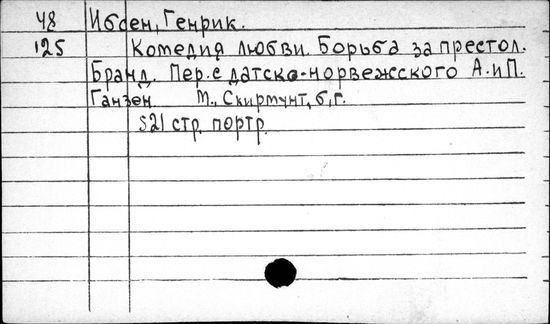 48 Ибсен, Генрик.
125 Комедия любви. Борьба за престол.
Бранд. Пер. с датско-норвежского А. и П.
Ганзен. М., Скирмунт, б.г.
521 стр. портр.